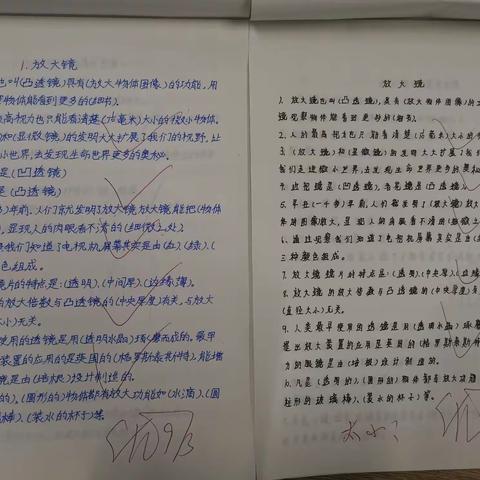 1.放大镜
也叫(凸透镜)具有(放大物体图像)的功能,用
物体能看到更多的(细节)。
高视力也只能看清楚(五毫米)大小的微小物体。
和(显微镜)的发明大大扩展了我们的视野,让
小世界,去发现生命世界更多的奥秘。
是(凹透镜)
是(凸透镜)
年前,人们就发明了放大镜,放大镜能把(物体
),显现人的肉眼看不清的(细微之处)
我们知道了电视机屏幕其实是由(红)、(绿)、(
色组成。
镜片的特点是:(透明)、(中间厚)、(边缘薄)。
的放大倍数与凸透镜的(中央厚度)有关,与放大
小)无关。
使用的透镜是用(透明水晶)琢磨而成的。最早
装置的应用的是英国的(格罗斯泰斯特),能增
镜是由(培根)设计制造的。
的)、(圆形的)物体都有放大功能如(水滴)、(圆
棒)、(装水的杯子)等。
放大镜
1.放大镜也叫(凸透镜),具有(放大物体图像)的
镜观察物体能看到更多的(细节)。
2.人的最高视力也只能看清楚(五毫米)大小的
3.(放大镜)和(显微镜)的发明大大扩展了我
们走进微小世界,去发现生命世界更多的奥秘
4.近视镜是(凹透镜),老花镜是(凸透镜)。
5.早在(一千多)年前,人们就发明了(放大镜)放大
体的图像放大,显现人的肉眼看不清的(细微之
6.通过观察我们知道了电视机屏幕其实是由(
三种颜色组成。
7.放大镜镜片的特点是:(透明)、(中央厚)、(边缘
8.放大镜的放大倍数与凸透镜的(中央厚度)有
(直径大小)无关。
9.人类最早使用的透镜是用(透明水晶)琢磨
提出放大装置的应用的是英国的(格罗斯泰斯特
力的眼镜是由(培根)设计制造的。
10.凡是(透明的)、(圆形的)物体都有放大功能
柱形的玻璃棒)、(装水的杯子)等。
太小?